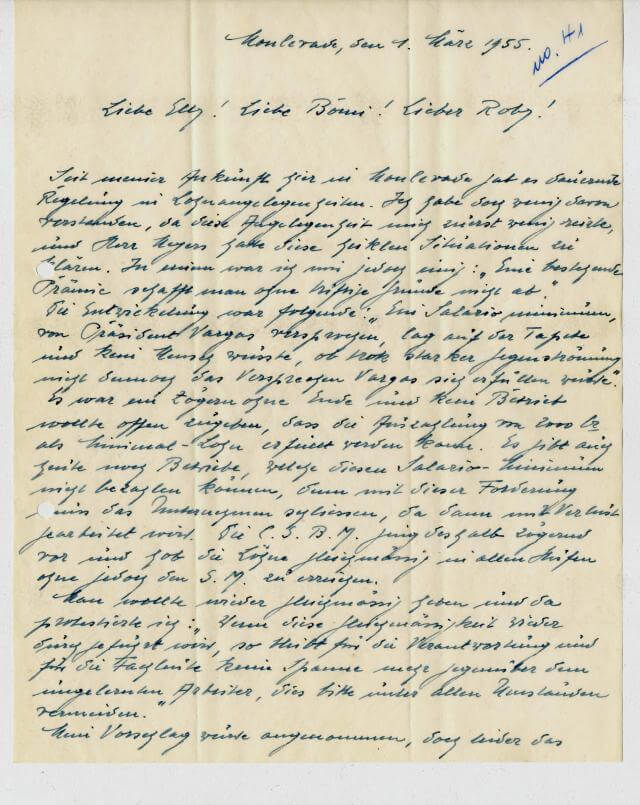 Monlevade, den 1. März 1955.
no. H1
Liebe Elly! Liebe Bömi! Lieber Roby!
Seit meiner Ankunft hier in Monlevade gab es dauernde
Regelung in Lohnangelegenheiten. Ich habe doch wenig davon
verstanden, da diese Angelegenheit mich zuerst wenig reizte,
und Herr Meyers hatte diese heiklen Situationen zu
klären. In einem war ich mir jedoch einig: „Eine bestehende
Prämie schafft man ohne triftige Gründe nicht ab"
Die Entwickelung war folgende: „Ein Salario minimum,
von Präsident Vargas versprochen, lag auf der Tapete
und kein Mensch wusste, ob trotz starker Gegenströmung
nicht dennoch das Versprechen Vargas sich erfüllen würde".
Es war ein Zögern ohne Ende und kein Betrieb
wollte offen zugeben, dass die Auszahlung von 2000 Cz
als Minimal-Lohn erfüllt werden kann. Es gibt auch
heute noch Betriebe, welche diesen Salario-Minimum
nicht bezahlen können, denn mit dieser Forderung
muss das Unternehmen schliessen, da dann mit Verlust
gearbeitet wird. Die C.S.B.M. ging deshalb zögernd
vor und hob die Löhne gleichmässig in allen Stufen
ohne jedoch den S.M. zu erreichen.
Man wollte wieder gleichmässig heben und da
protestierte ich: „Wenn diese Gleichmässigkeit wieder
durchgeführt wird, so bleibt für die Verantwortung und
für die Fachleute keine Spanne mehr gegenüber dem
ungelernten Arbeiter, dies bitte unter allen Umständen
vermeiden."
Mein Vorschlag wurde angenommen, doch leider das